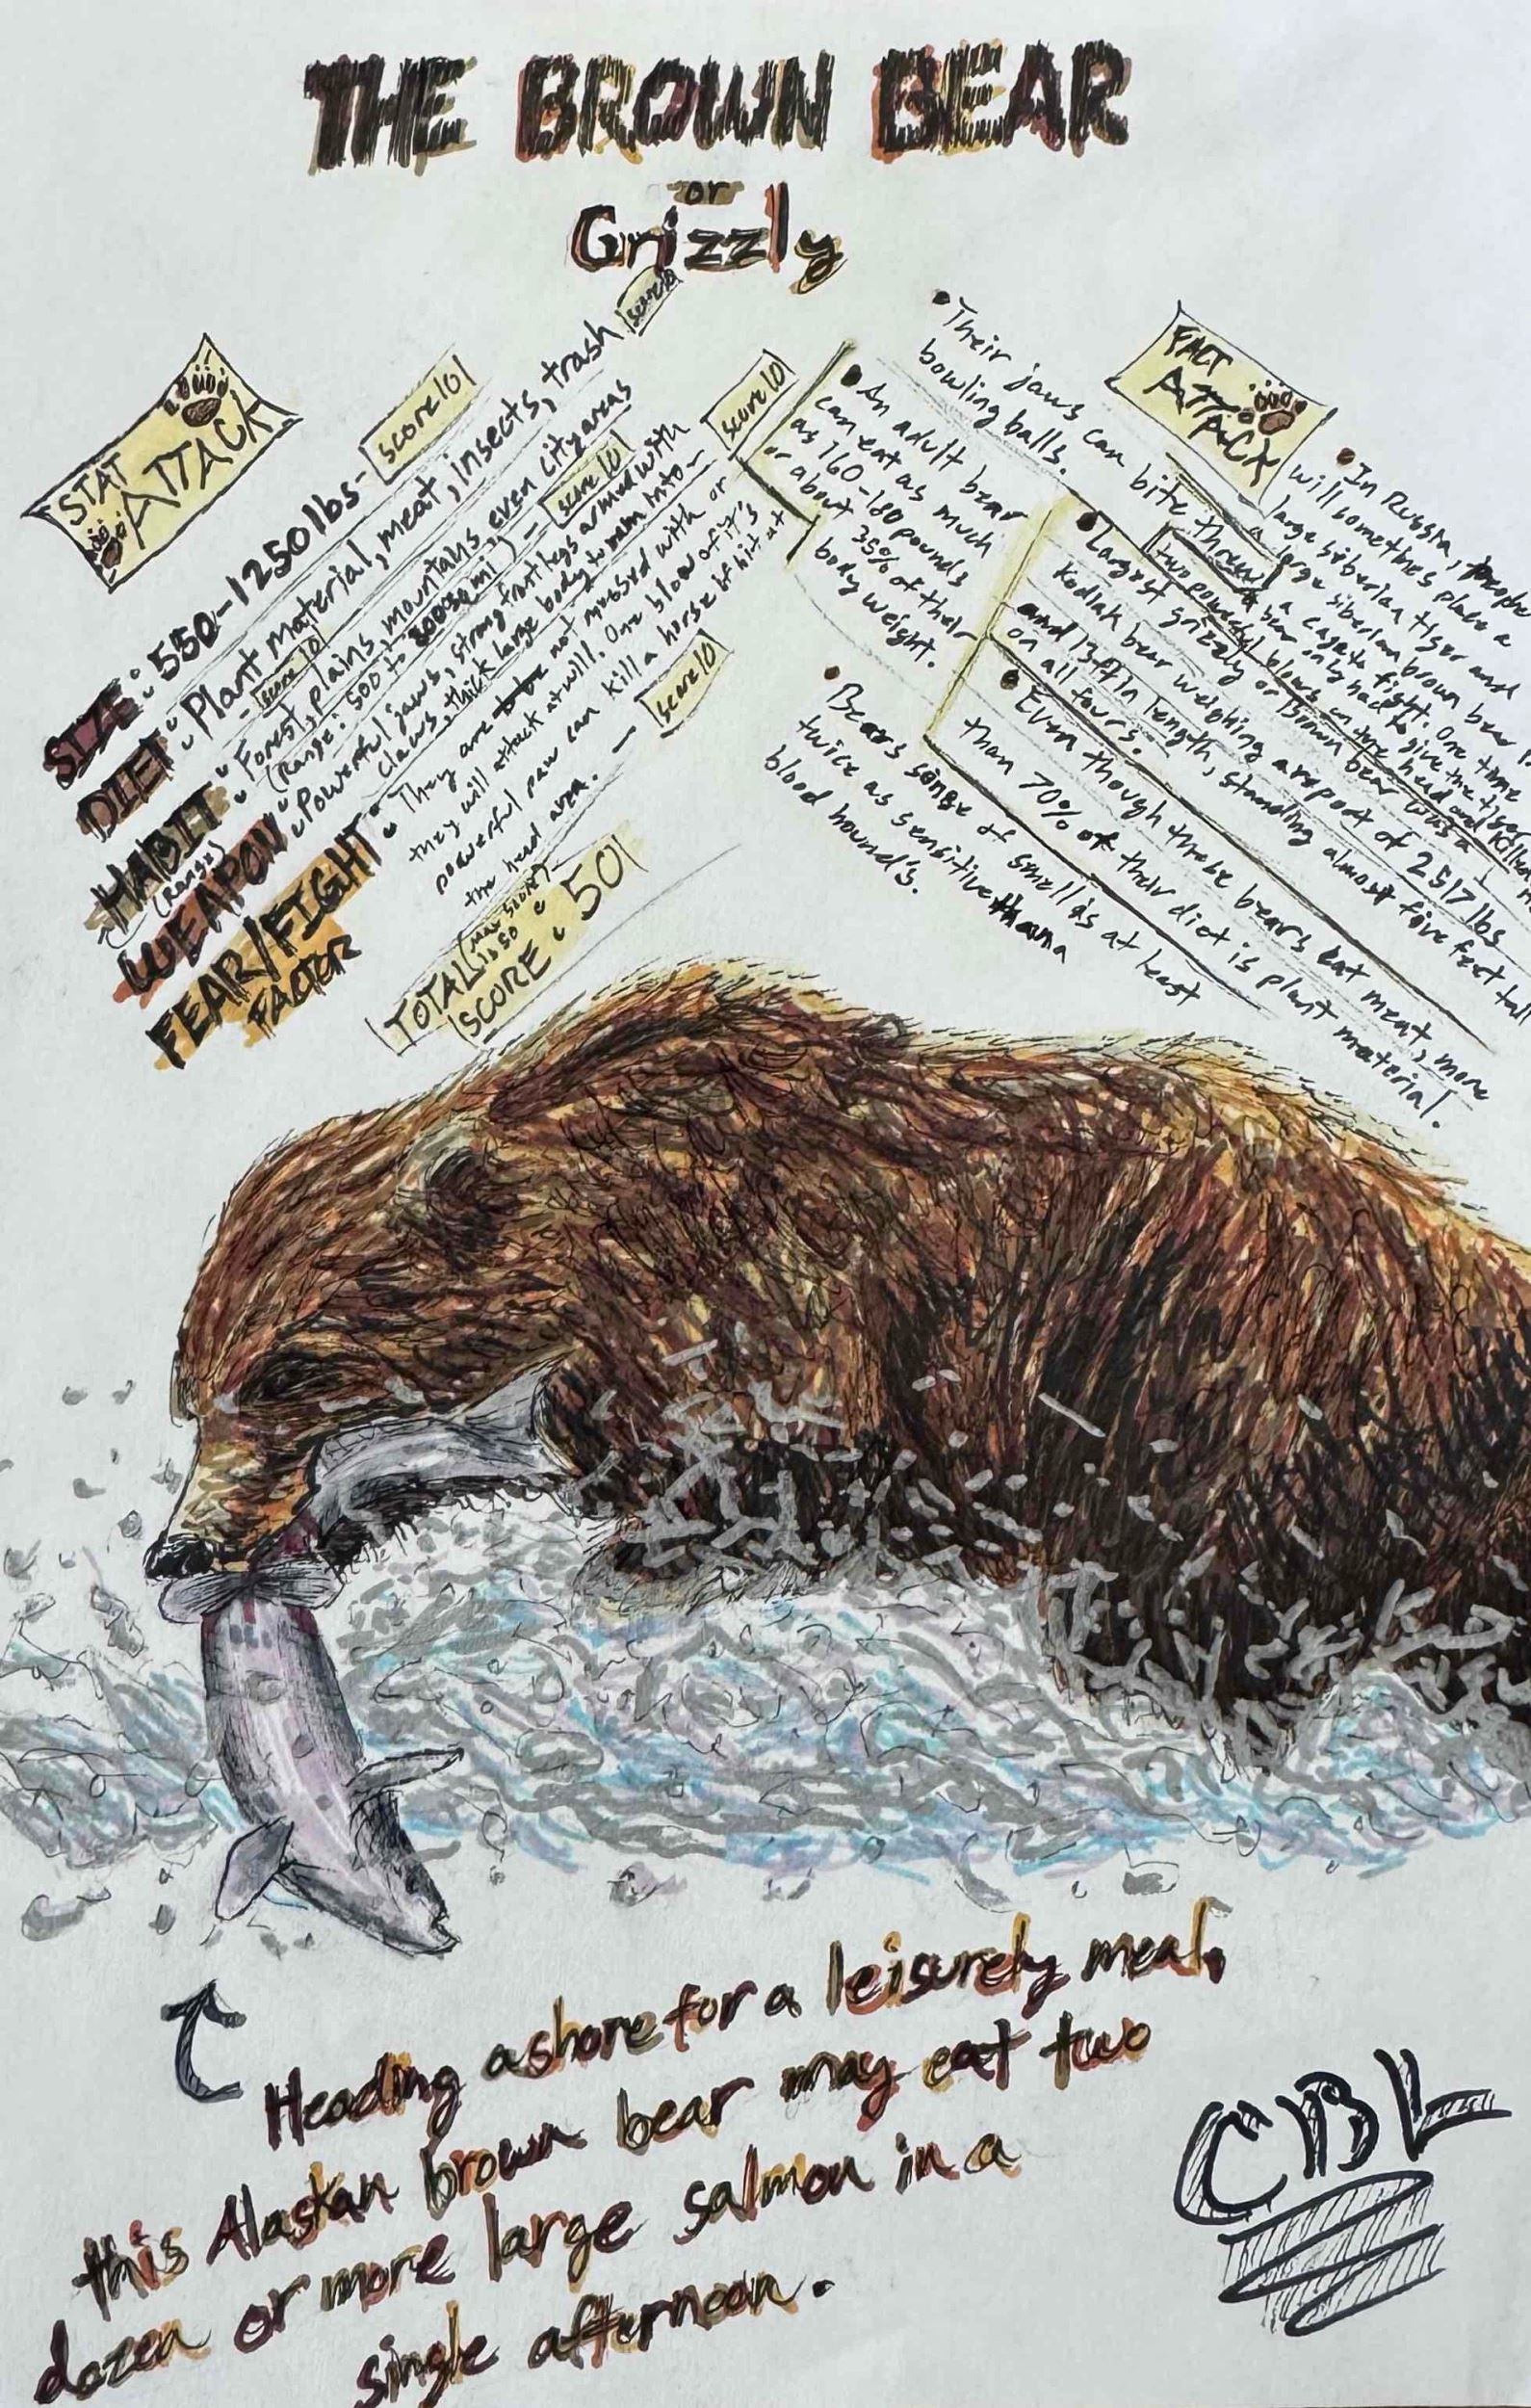 THE BROWN BEAR
or
Grizzly
STAT
ATTACK
SIZE: 550-1250 lbs- score 10
DIET: Plant material, meat, insects, trash score 10
- score 10
HABIT: Forest, plains, mountains, even city areas
(Range) (Range: 500 to mi²) - score 10
WEAPON: Powerful jaws, strong front legs armed with
claws, thick large body to main into- score 10
FEAR/FIGHT
FACTOR: They are not messed with or
they will attack at will. One blow of it's
powerful paw can kill a horse if hit at
the head area. - score 10
TOTAL (max score is 50)
SCORE: 50
FACT
ATTACK
• Their jaws can bite threw
bowling balls.
• An adult bear
can eat as much
as 160-180 pounds
or about 35% of their
body weight.
• In Russia, people
will somethes place a
large siberian tiger and
a large siberian brown bear
a cage to fight. One time
a bear only had to give the tiger
two powerful blows in the head and killed
• Largest grizzly or Brown bear was a
Kodiak bear weighing a report of 2517 lbs
and 13ft in length, standing almost five feet tall
on all fours.
• Even though these bears eat meat, more
than 70% of their diet is plant material.
• Bears singe of smell is at least
twice as sensitive than a
blood hound's.
Heading ashore for a leisurely meal,
this Alaskan brown bear may eat two
dozen or more large salmon in a
single afternoon.
CBL